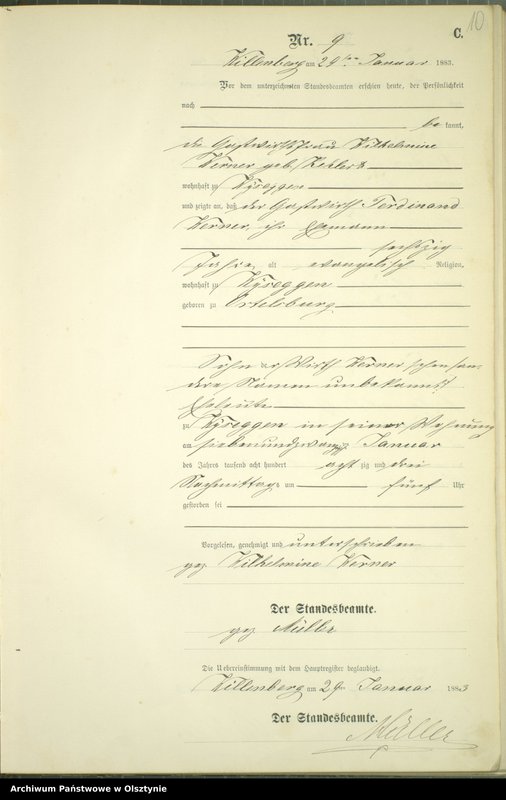 10
C.
Nr. 9
Willenberg am 29ten Januar 1883.
Vor dem unterzeichneten Standesbeamten erschien heute, der Persönlichkeit
nach
be kannt,
die Gastwirthsfrau Wilhelmine
Werner geb.
wohnhaft zu
und zeigte an, daß der Gastwirth Ferdinand
Werner, ihr Ehemann
sechszig
Jahre alt evangelisch Religion,
wohnhaft zu
geboren zu Ortelsburg
Sohn der Wirth Werner schen
deren Namen unbekannt
Eheleute
zu in seiner Wohnung
am siebenundzwanzig Januar
des Jahres tausend acht hundert acht zig und drei
Nachmittags um fünf Uhr
gestorben sei
Vorgelesen, genehmigt und unterschrieben
gez Wilhelmine Werner
Der Standesbeamte.
gez Müller
Die Uebereinstimmung mit dem Hauptregister beglaubigt.
Willenberg am 29ten Januar 1883
Der Standesbeamte.
Müller
Archiwum Państwowe w Olsztynie